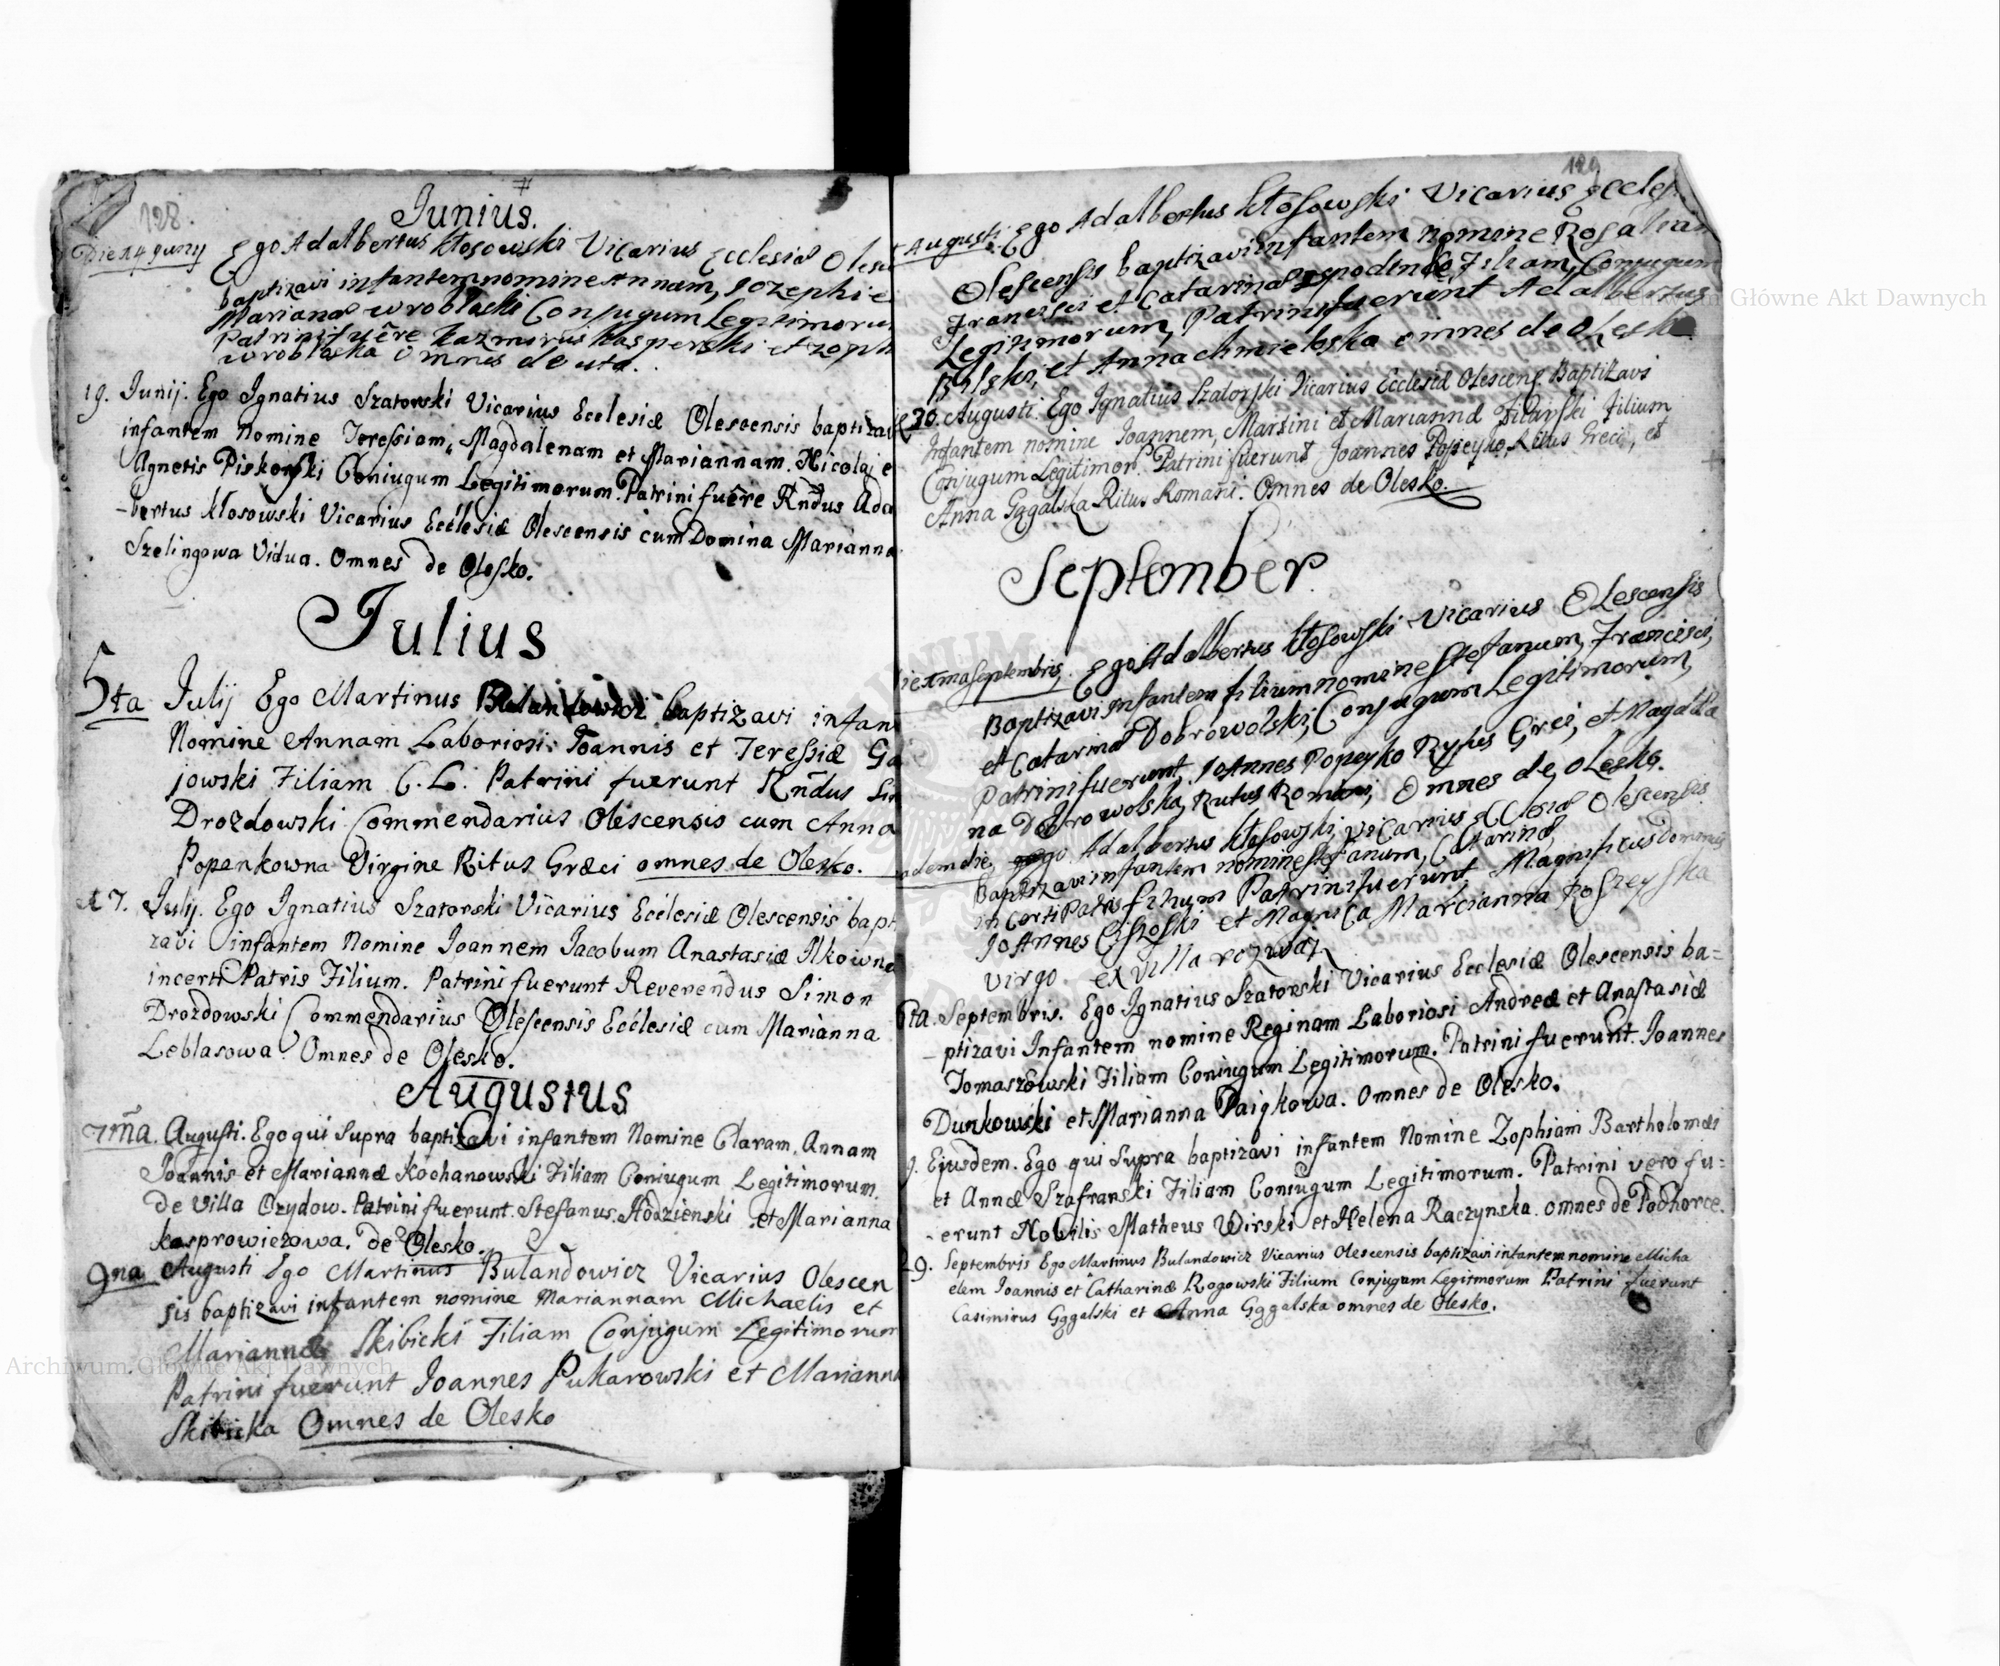 128.
Junius.
Die 14 Junij Ego Adalbertus Kłosowski Vicarius Ecclesiæ Olesc
baptizavi infantem nomine Annam, Jozephi e
Marianæ Wroblacki Conjugum Legitimoru
Patrini fuêre Kazmirus Kasperski et Zoph
Wroblacka Omnes de uta.
19. Junij. Ego Ignatius Szatorski Vicarius Ecclesiæ Olescensis baptizavi
infantem Nomine Teressiam, Magdalenam et Mariannam. Nicolaj e
Agnetis Piskorski Coniugum Legitimorum. Patrini fuêre Rndus Ada
-bertus Kłosowski Vicarius Ecclesiæ Olescensis cum Domina Marianna
Szelingowa Vidua. Omnes de Olesko.
Julius
5ta Julij Ego Martinus Bulandowicz baptizavi infan
Nomine Annam Laboriosi Joannis et Teressiæ Ga
jowski Filiam C. L. Patrini fuerunt Rndus Sim
Drozdowski Commendarius Olescensis cum Anna
Popenkowna Virgine Ritus Græci omnes de Olesko.
17. Julij. Ego Ignatius Szatorski Vicarius Ecclesiæ Olescensis bapt
zavi infantem Nomine Joannem Jacobum Anastasiæ Ilkowne
incerti Patris Filium. Patrini fuerunt Reverendus Simon
Drozdowski Commendarius Olescensis Ecclesiæ cum Marianna
Leblasowa. Omnes de Olesko.
Augustus
7ma. Augusti. Ego qui Supra baptizavi infantem Nomine Claram, Annam
Joannis et Mariannæ Kochanowski Filiam Coniugum Legitimorum.
de Villa Ozydow. Patrini fuerunt. Stefanus Adzienski et Marianna
Kasprowiczowa. de Olesko.
9na Augusti Ego Martinus Bulandowicz Vicarius Olescen
sis baptizavi infantem nomine Mariannam Michaelis et
Mariannæ Skibicki Filiam Conjugum Legitimorum
Patrini fuerunt Joannes Pukarowski et Mariann
Skibicka Omnes de Olesko
129
Augusti. Ego Adalbertus Kłosowski Vicarius Eccles
Olescensis baptizavi infantem nomine Rosaliam
Francisci et Catarinæ Filiam, Conjugum
Legitimorum, Patrini fuerunt Adalbertus
Bilski, et Anna Chmielska omnes de Olesko
30. Augusti. Ego Ignatius Szatorski Vicarius Ecclesiæ Olescens. Baptizavi
Infantem nomine Joannem, Martini et Mariannæ Filarski Filium
Conjugum Legitimor. Patrini fuerunt Joannes Popeyko, Ritus Greci, et
Anna Gągalska Ritus Romani. Omnes de Olesko.
September.
Septembris, Ego Adalbertus Kłosowski Vicarius Olescensis
Baptizavi infantem filium nomine Stefanum, Francisci,
et Catarinæ Dobrowolski, Conjugum Legitimorum,
Patrini fuerunt, Joannes Popeyko Rytus Greci, et Magdale
na Dobrowolska, Rutus Romani, Omnes de Olesko.
adem die, ego Adalbertus Kłosowski, Vicarius Ecclesiæ Olescensis
baptizavi infantem nomine Stefanum, Catarinæ,
incerti Patris filium Patrini fuerunt Magnificus Dominus
Joannes et Magnica Marcianna
virgo. ex villa rozwaz
6ta. Septembris. Ego Ignatius Szatorski Vicarius Ecclesiæ Olescensis ba=
-ptizavi Infantem nomine Reginam Laboriosi Andreæ et Anastasiæ
Tomaszowski Filiam Coniugum Legitimorum. Patrini fuerunt. Joannes
Dunkowski et Marianna Paigkowa. Omnes de Olesko.
9. Ejusdem. Ego qui Supra baptizavi infantem Nomine Zophiam Bartholomæi
et Annæ Szafranski Filiam Coniugum Legitimorum. Patrini vero fu=
-erunt Nobilis Matheus Wirski et Helena Raczynska. omnes de Podhorce.
29. Septembris Ego Martinus Bulandowicz Vicarius Olescensis baptizavi infantem nomine Micha
elem Joannis et Catharinæ Rogowski Filium Conjugum Legitmorum Patrini fuerunt
Casimirus Gągalski et Anna Gągalska omnes de Olesko.
Archiwum Główne Akt Dawnych
Archiwum Główne Akt Dawnych